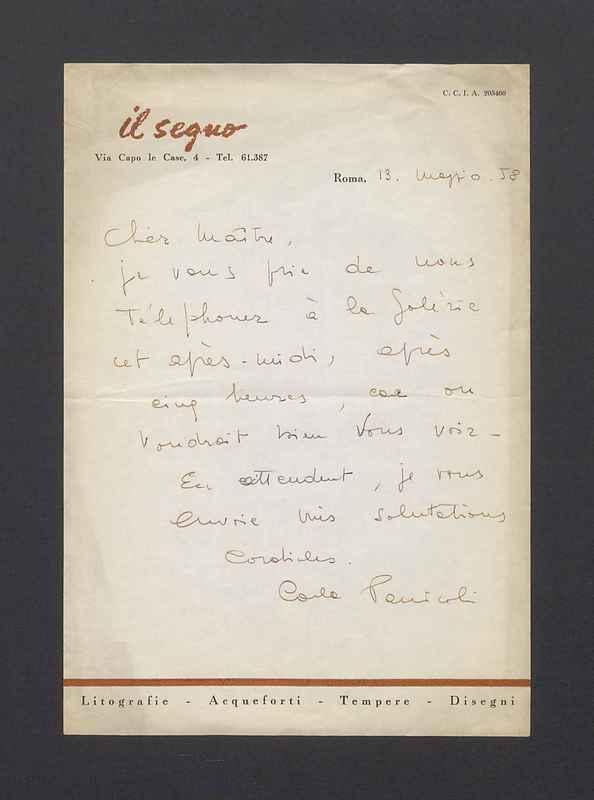 C. C. I. A. 205400
il segno
Via Capo le Case, 4 - Tel. 61.387
Roma, 13. Maggio. 58
Chèr Maître,
je vous prie de nous
Téléphoner à la Galérie
cet après-midi, après
cinq heures, car on
voudrait bien vous voir -
En attendent, je vous
envoie mes salutations
cordiales.
Carla Panicali
Litografie - Acqueforti - Tempere - Disegni